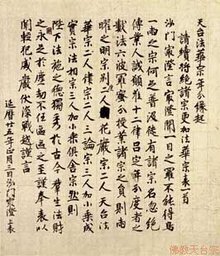 天台法華宗年分縁起
請續將絶諸宗更加法華宗表一首
沙門最澄言最澄聞一目之羅不能得鳥
一兩之宗何足普汲徒有諸宗名忽絶
傳業人誠願准十二律呂定年分度者之
數法六波羅蜜分授業諸宗之員則兩
曜之明宗別二人花嚴宗二人天台法
華宗二人律宗二人三論宗三人加小乘成
實宗法相宗三人加小乘倶舍宗然則
陛下法施之德獨秀於古今群生法財
之永足於塵劫不任區區之至謹奉表以
聞輕犯威嚴伏深戰越謹言
延暦廿五年正月三日沙門最澄上表
佛教天台宗